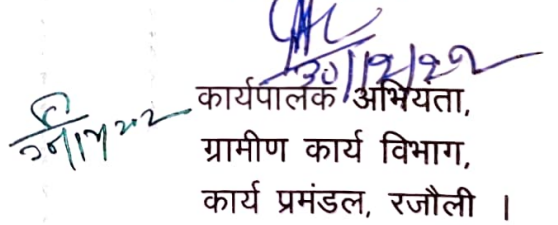 30/12/22
कार्यपालक अभियंता,
ग्रामीण कार्य विभाग,
कार्य प्रमंडल, रजौली ।